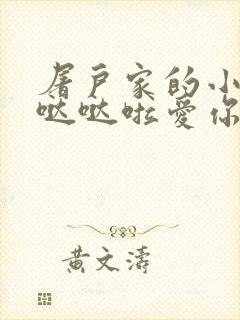 屠户家的小
哒哒啦爱你
黄文涛